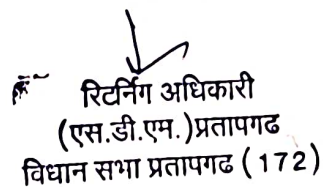 रिटर्निंग अधिकारी
(एस.डी.एम.)प्रतापगढ
विधान सभा प्रतापगढ (172)